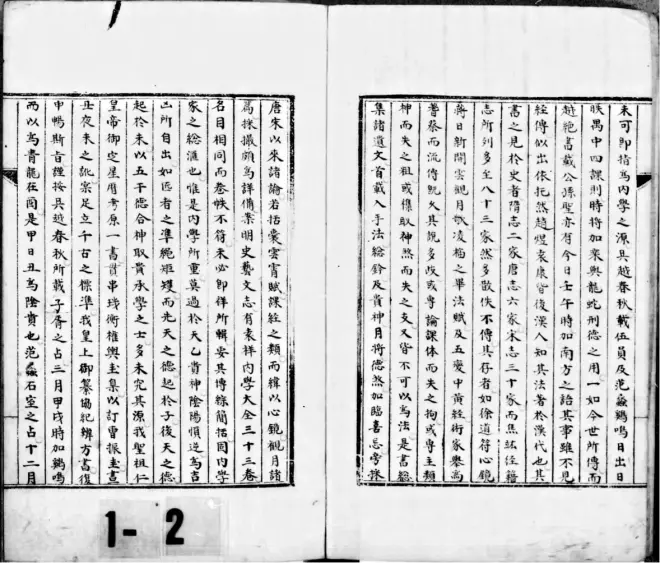 未可即指爲六壬之源其越春秋載伍員及范蠡鷄鳴日出日
昳禺中四課則時將加乘與龍蛇刑德之用一如今世所傳而
越絕書載公孫聖亦有今日壬午時加南方之語其事雖不見
經傳似出依托然趙煜袁康皆後漢人知其法著於漢代也其
書之見於史者隋志二家唐志六家宋志三十家而焦竑經籍
志所列多至八十三家然多散佚不傳其存者如徐道符心鏡
蔣日新開雲觀月歌凌福之畢法賦及五變中黃經術家奉爲
蓍蔡而流傳既久其說多歧或專論課體而失之拘或專主類
神而失之
集諸遺文首載入手法總鈐及貴神月將德煞加臨喜忌旁採
唐宋以來諸論若括囊雲霄賦課經之類而緯以心鏡觀月諸
篇採撮頗爲詳備案明史藝文志有袁祥六壬大全三十三卷
名目相同而卷帙不符未必即祥所輯要其博綜簡括固六壬
家之總滙也惟是六壬所重莫過於天乙貴神陰陽順逆爲吉
凶所自出如匠者之準繩矩矱而先天之德起於子後天之德
起於未以五干德合神取貴承學之士多未究其源我聖祖仁
皇帝御定星曆考原一書貫串璣衡權輿圭臬以訂曹振圭晝
丑夜未之訛宗足立千古之標準我皇上御纂協紀辨方書復
申暢斯旨謹按吳越春秋所載子胥之占三月甲戌時加鷄鳴
而以爲青龍在酉是甲日丑爲陰貴也范蠡石室之占十二月
1-2